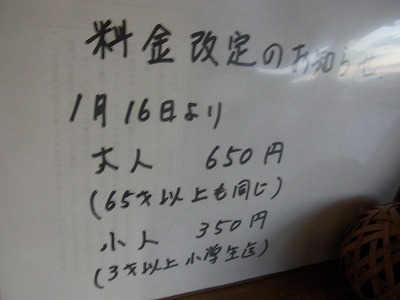 料金改定のお知らせ.
1月16日より
大人 650円
(65才以上も同じ)
小人 350円
(3才以上小学生迄)